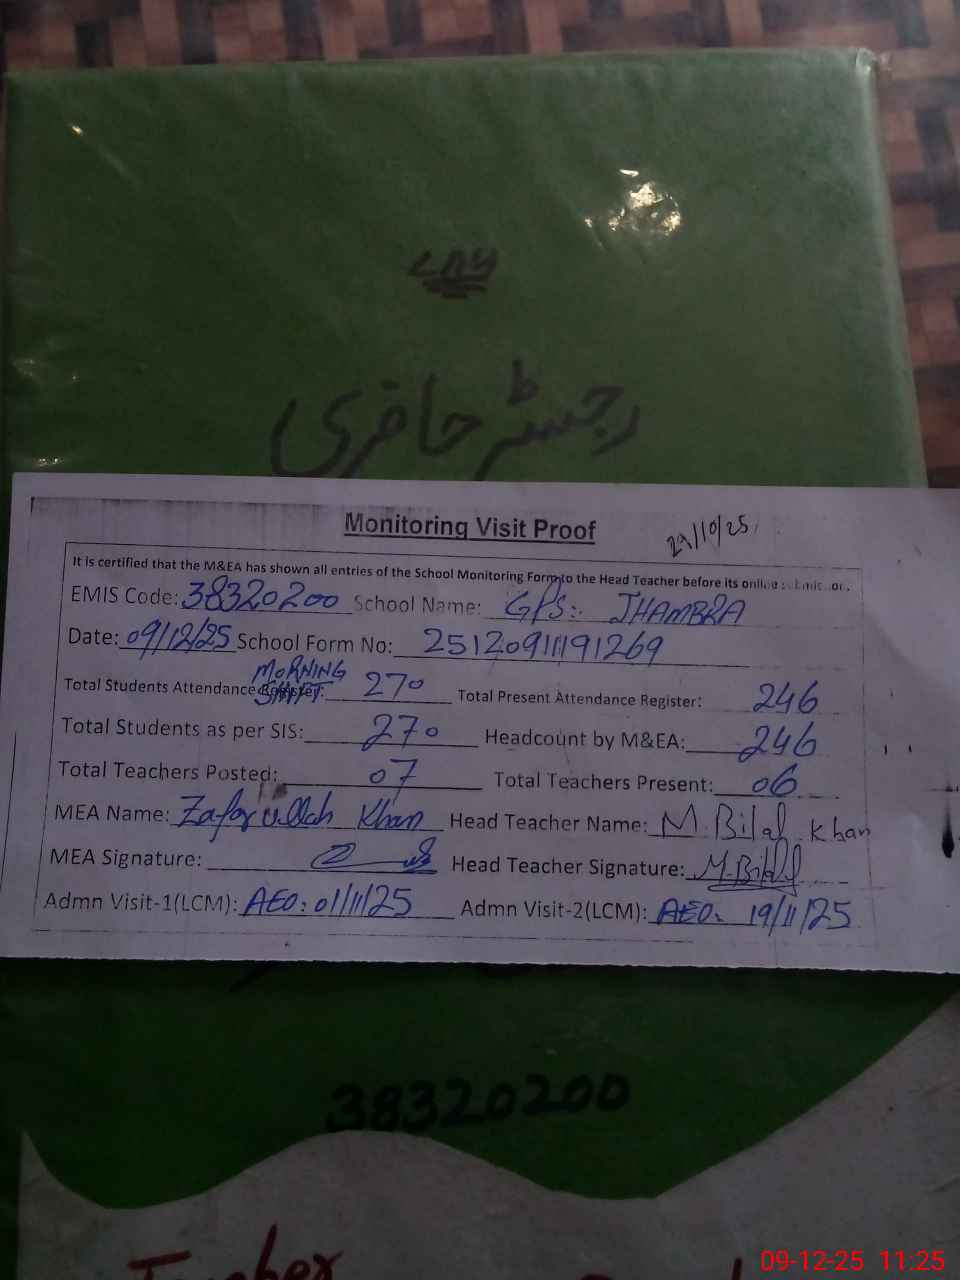 رجسٹر حاضری
Monitoring Visit Proof
29/10/25
It is certified that the M&EA has shown all entries of the School Monitoring Form to the Head Teacher before its online submission.
EMIS Code: 38320200 School Name: GPS:. JHAMBRA
Date: 09/12/25 School Form No: 25120911191269
MORNING
SHIFT
Total Students Attendance Register: 270 Total Present Attendance Register: 246
Total Students as per SIS: 270 Headcount by M&EA: 246
Total Teachers Posted: 07 Total Teachers Present: 06
MEA Name: Zafar ullah Khan Head Teacher Name: M. Bilal Khan
MEA Signature: Head Teacher Signature: M.Bilal
Admn Visit-1(LCM): AEO: 01/11/25 Admn Visit-2(LCM): AEO: 19/11/25
38320200
Teacher
09-12-25 11:25